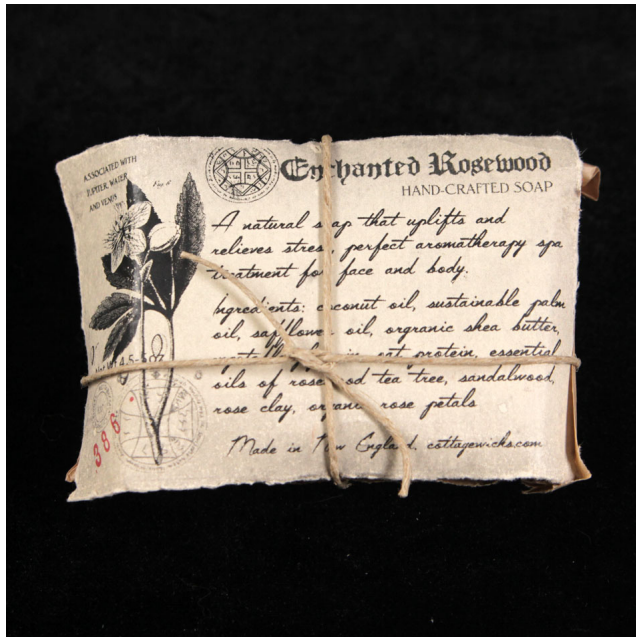 ASSOCIATED WITH
JUPITER, WATER
AND VENUS
Enchanted Rosewood
HAND-CRAFTED SOAP
A natural soap that uplifts and
relieves stress, perfect aromatherapy spa
treatment for face and body.
Ingredients: coconut oil, sustainable palm
oil, safflower oil, orgranic shea butter,
protein, essential
oils of rosewood tea tree, sandalwood,
rose clay, organic rose petals
Made in New England. cottagewicks.com
Net Wt 4.5-5 oz
386